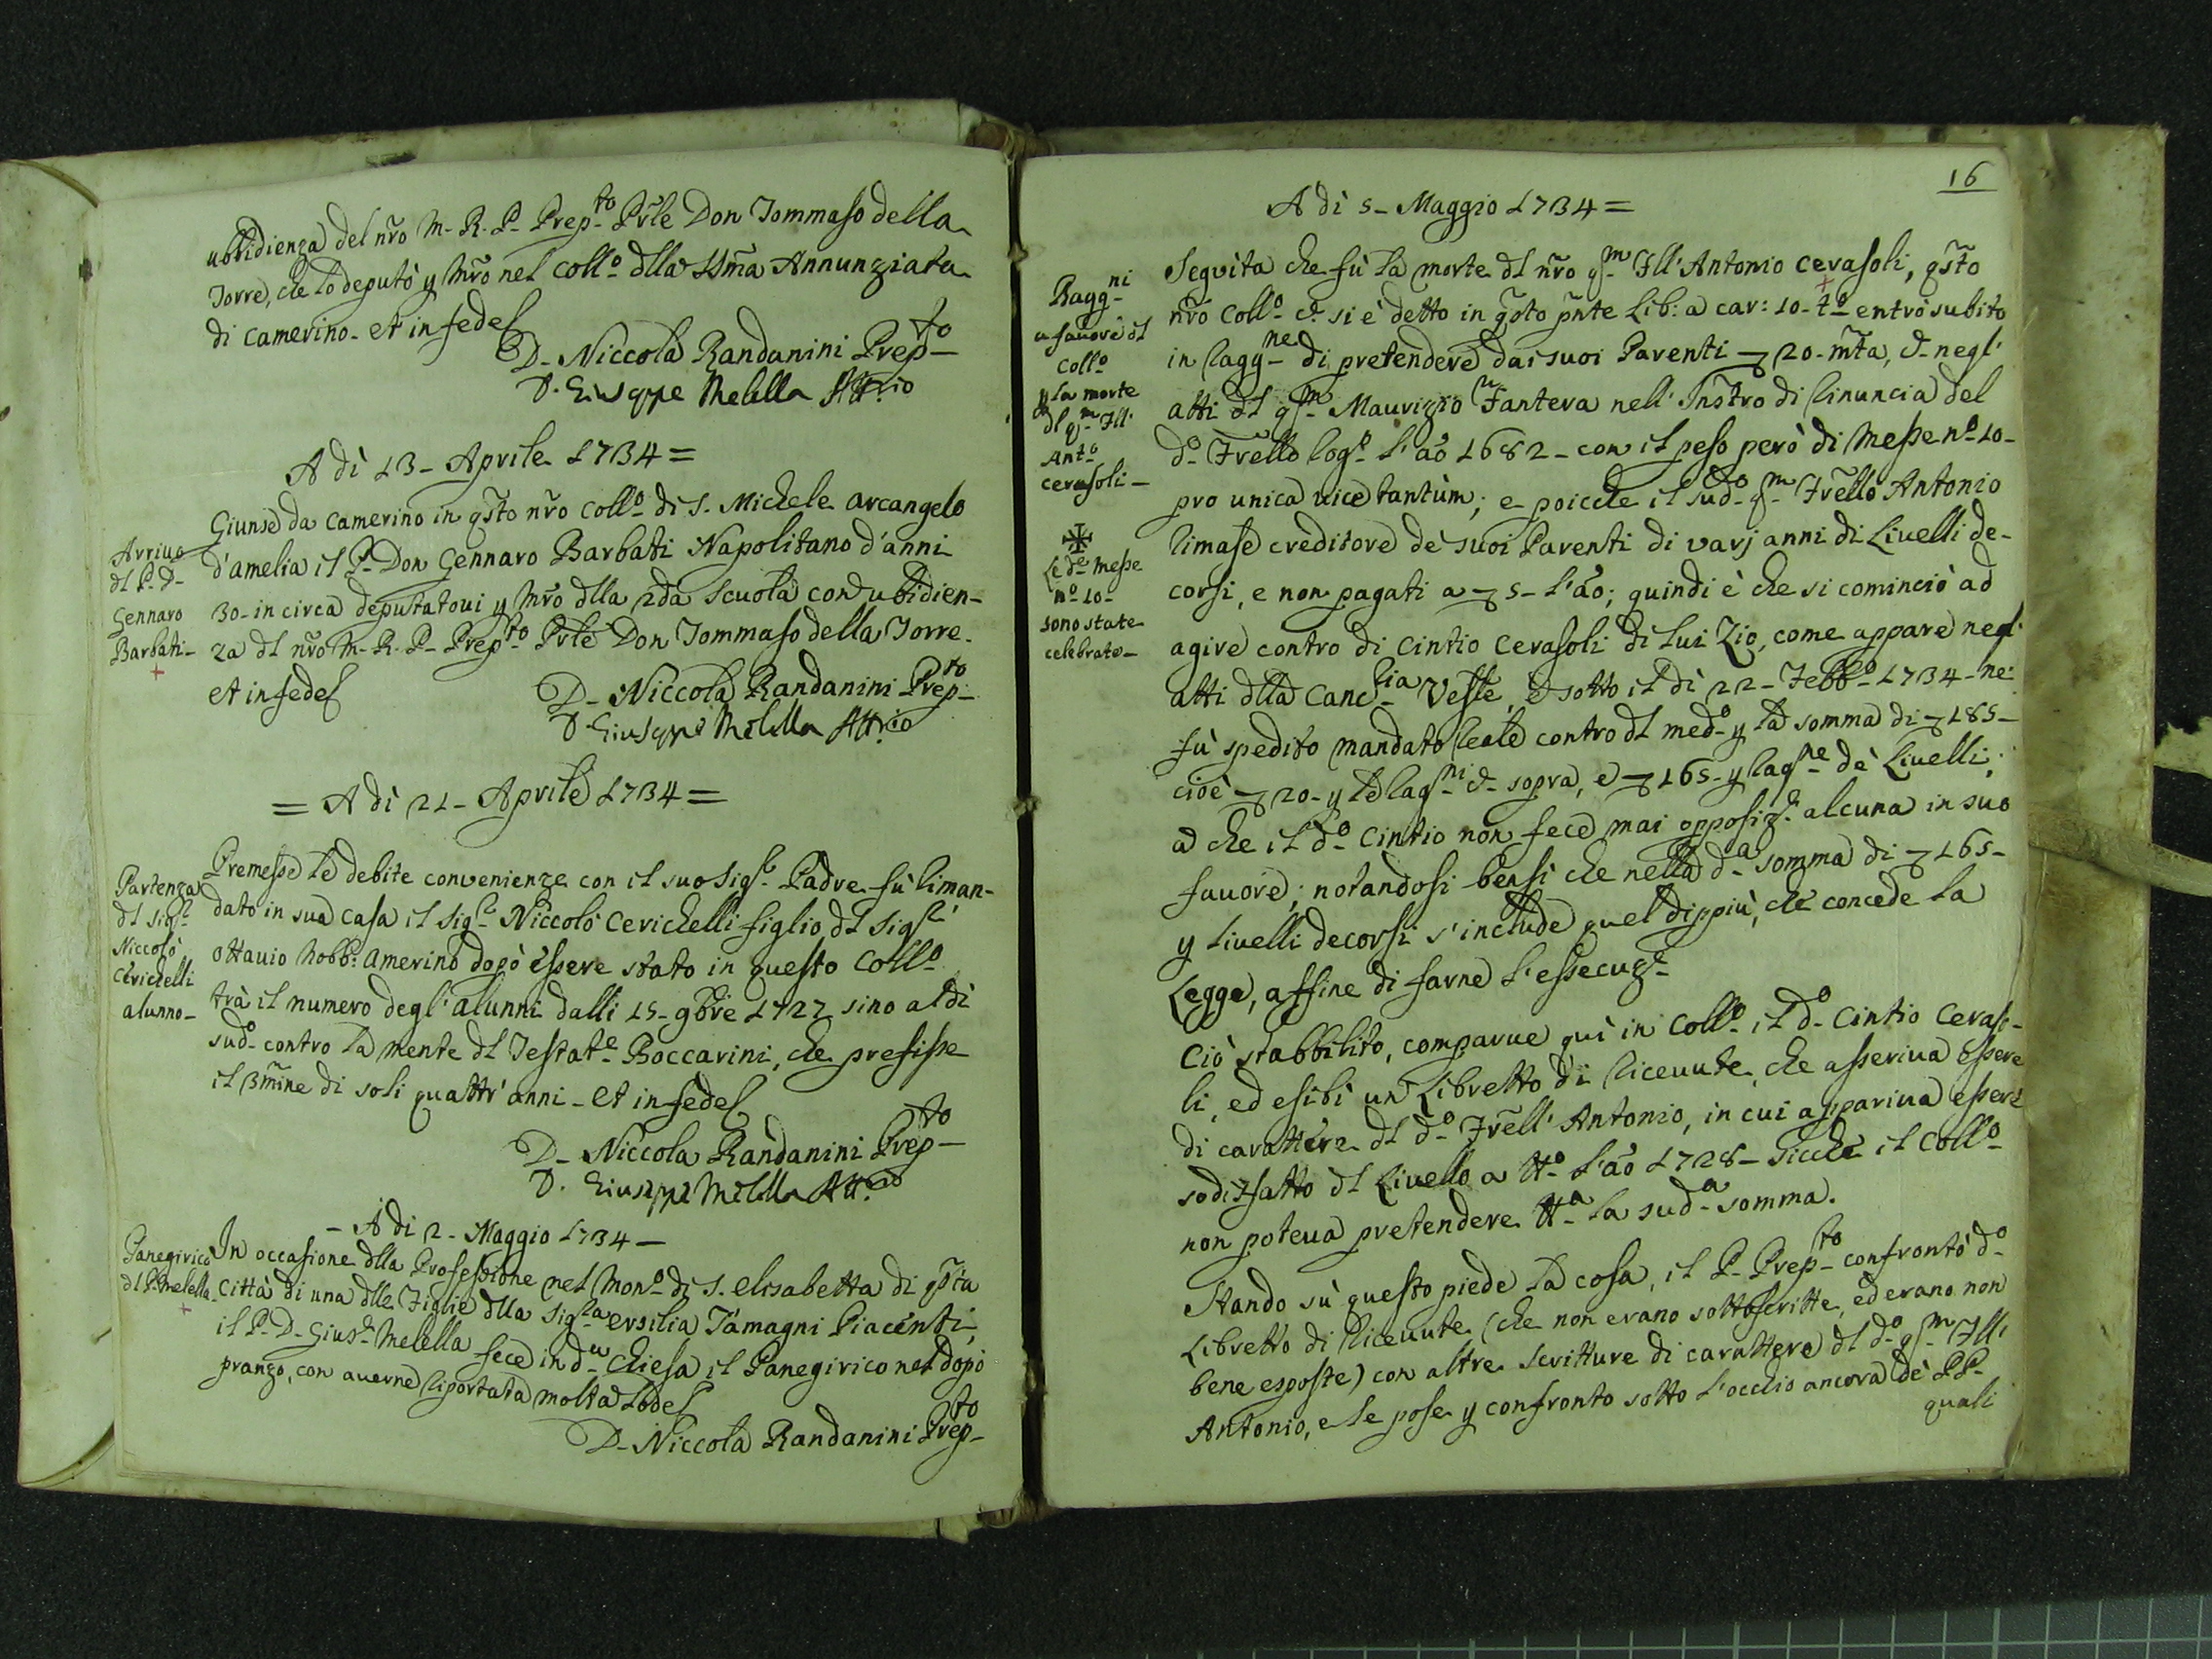 ubbidienza del nr̃o M. R. P. Prep.to Pr̃le Don Tommaso della
Torre, che lo deputò p Mr̃o nel Coll.o dlla SSm̃a Annunziata
di Camerino. Et in fede
D. Niccola Randanini Prep.to
D. Giuseppe Melella Att.rio
A dì 13 - Aprile 1734 =
Arrivo
dl P. D.
Gennaro
Barbati -
+
Giunse da Camerino in qsto nr̃o Coll.o di S. Michele arcangelo
d'amelia il P. Don Gennaro Barbati Napolitano d'anni
30 - in circa deputatovi p Mr̃o dlla 2da scuola con ubidien-
za dl nr̃o M. R. P. Prep.to Pr̃le Don Tommaso della Torre.
et in fede
D. Niccola Randanini Prep.to
D. Giuseppe Melella Att.rio
= A dì 21 - Aprile 1734 =
Partenza
dl Sig.r
Niccolò
Cerichelli
alunno -
Premesse le debite convenienze con il suo Sig.r Padre fù riman-
dato in sua casa il Sig.r Niccolò Cerichelli figlio dl Sig.r
Ottavio Nobb: Amerino dopò essere stato in questo Coll.o
trà il numero degl'alunni dalli 15 - 9bre 1727 sino al dì
sud.o contro la mente dl Testat.e Boccarini, che prefisse
il 3mine di soli quattr'anni - Et in fede
D. Niccola Randanini Prep.to
D. Giuseppe Melella Att.rio
- A di 2 - Maggio 1734 -
Panegirico
dl P. Melella
+
In occasione dlla Professione nel Mon.o di S. Elisabetta di qsta
Città di una dlle Figlie dlla Sig.ra Ersilia Tamagni Piacenti,
il P. D. Gius.e Melella fece in d.a Chiesa il Panegirico nel dopò
pranzo, con averne riportata molta lode
D. Niccola Randanini Prep.to
16
A dì 5 - Maggio 1734 =
Ragg.ni
a favore dl
Coll.o
p la morte
dl q.m Fll'
Ant.o
Cerasoli -
Le d.e Messe
n.o 10 -
sono state
celebrate -
Seguita che fù la morte dl nr̃o q.m Fll' Antonio Cerasoli, qsto
nr̃o Coll.o c. si è detto in qsto pnte Lib: a car: 10 - t.o entrò subito
in ragg.ne di pretendere dai suoi Parenti 20 - m̃ta, c. negl'
atti dl q.m Maurizio Fantera nell'Instro di rinuncia del
d.o Frello rog.o l'ão 1682 - con il peso però di Messe n.o 10 -
pro unica vice tantùm; e poiche il sud.o q.m Frello Antonio
rimase creditore de suoi Parenti di varj anni di Livelli de-
corsi, e non pagati a 5 - l'ão; quindi è che si cominciò ad
agire contro di Cintio Cerasoli di lui Zio, come appare negl'
atti dlla Canc.ria Vesle, e sotto il dì 22 - Febb.o 1734 - ne
fù spedito mandato reale contro dl med.o p la somma di 185 -
cioè 20 - p le rag.ni c. sopra, e 165 - p rag.ne de Livelli;
a che il d.o Cintio non fece mai opposiz.e alcuna in suo
favore; notandosi bensì che nella d.a somma di 165 -
p livelli decorsi s'include quel dippiù, che concede la
Legge, affine di farne l'essecuz.e
Ciò stabbilito, comparve quì in Coll.o il d.o Cintio Ceraso-
li, ed esibì un Libretto di ricevute, che asseriva essere
di carattere dl d.o Frell'Antonio, in cui appariva essere
sodisfatto dl Livello a tt.o l'ão 1728 - Sicche il Coll.o
non poteva pretendere tt.a la sud.a somma.
Stando sù questo piede la cosa, il P. Prep.to confrontò d.o
Libretto di ricevute (che non erano sottoscritte, ed erano non
bene esposte) con altre scritture di carattere dl d.o q.m Fll'
Antonio, e le pose p confronto sotto l'occhio ancora de PP.
quali